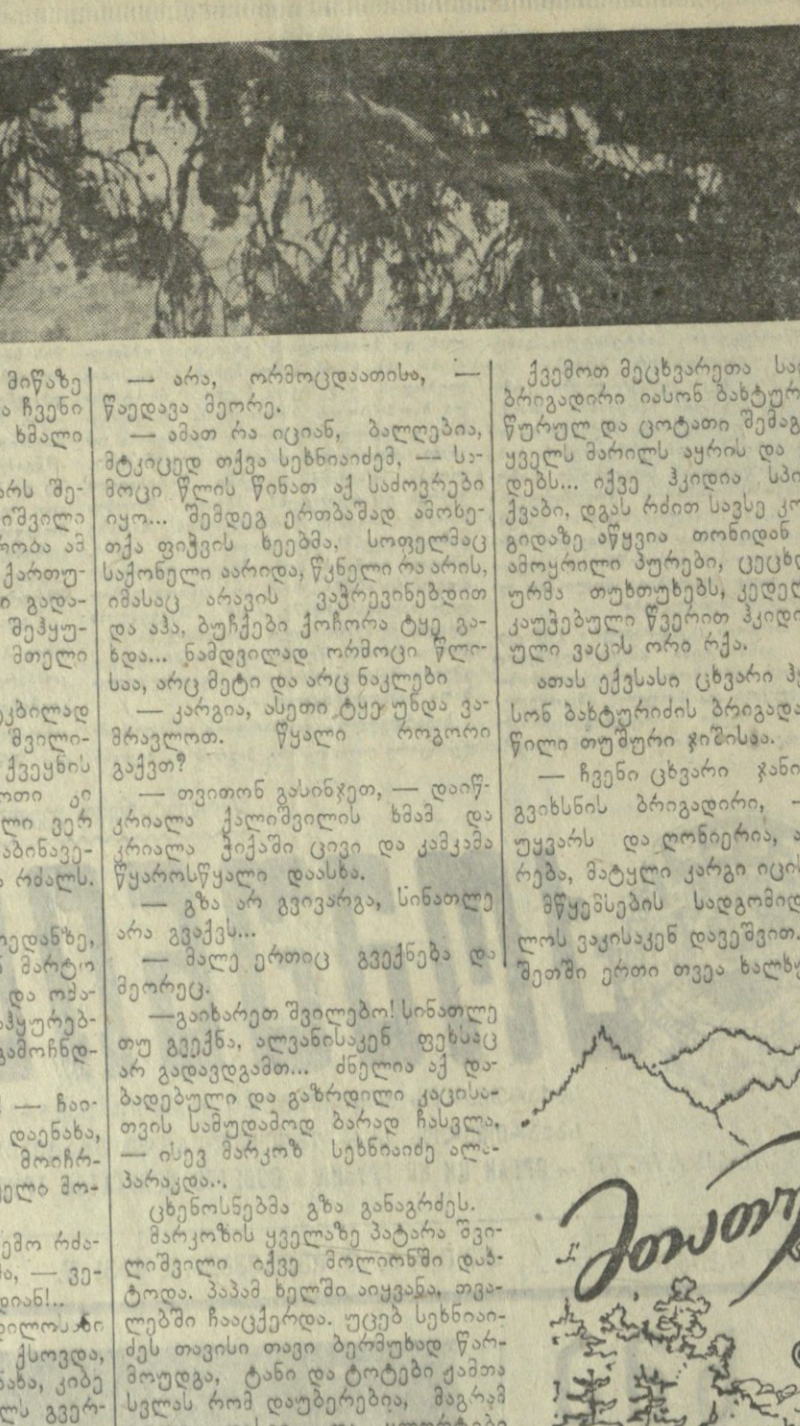 მიწაზე
ა ჩვენი
ხმალი
არს შე-
იშვილი
რობა ამ
ქართუ-
ი გადა-
შეჰყუ-
მთელი
კბილად
შვილი-
ქვეყნის
ოთი კი
ლი ვერ
აბინავე-
რძალს.
ოედანზე,
მარტო
და ოჯა-
აჰყურებ-
გამოჩნდ-
— ჩაი-
დაენახა,
მოიჩრ-
ელი მო-
ემო რძა-
ა, — ვე-
დიან!..
ქსოვდა,
ახა, კიბე
ლს გვერ-
— არა, ორმოცდაათისა, —
წაედავა მეორე.
— ამათ რა იციან, ბალღებია,
მტკიცედ თქვა სეხნიაიძემ, — სა-
მოცი წლის წინათ აქ საძოვრები
იყო... შემდეგ ერთბაშად ამოხე-
თქა ფიჭვის ხეებმა, სოფელმაც
საქონელი აარიდა, წკნელი რა არის,
იმასაც არავის ვაჭრევინებდით
და აჰა, ბუჩქები ქოჩორა ტყე გა-
ხდა... ნამდვილად ორმოცი წლი-
საა, არც მეტი და არც ნაკლები
— კარგია, ასეთი ტყე უნდა ვა-
მრავლოთ. წყალი როგორი
გაქვთ?
— თვითონ გასინჯეთ, — დაიწ-
კრიალა ქალიშვილის ხმამ და
კრიალა ჭიქაში ცივი და კამკამა
წყაროსწყალი დაასხა.
— გზა არ გვივარგა, სინათლე
არა გვაქვს...
— მალე ერთიც გვექნება და
მეორეც.
—გაიხარეთ შვილებო! სინათლე
თუ გვექნა, ალვანისაკენ ფეხსაც
არ გადავდგამთ... ძნელია აქ და-
ბადებული და გაზრდილი კაცისა-
თვის სამუდამოდ ბარად ჩასვლა,
— ისევ მარკოზ სეხნიაიძე ალა-
პარაკდა...
ცხენოსნებმა გზა განაგრძეს.
მარკოზის ყველაზე პატარა შვი-
ლიშვილი იქვე მოლიონში დაბ-
ტოდა. პაპამ ხელში აიყვანა, თვა-
ლებში ჩააცქერდა. უცებ სეხნიაი-
ძეს თავისი თავი ბერმუხად წარ-
მოუდგა, ტანი და ტოტები ჟამთა
სვლას რომ დაუბერებია, მაგრამ
ქვემოთ მეცხვარეთა
ბრიგადირი იასონ ბახტურ
წურულ და ცოტათი შემაგ
ყველს მარილს აყრის და
დებს... იქვე ჰკიდია სპი
ქვაბი, დგას რძით სავსე კო
გიდაზე აწყვია თონიდან
ამოყრილი პურები, ცეცხლ
ურმა თუხთუხებს, კედელ
კაუჭებული წვერით ჰკიდი
ული ვაცის ორი რქა.
ათას ექვსასი ცხვარი ჰყ
სონ ბახტურიძის ბრიგადა
წილი თუშური ჯიშისაა.
— ჩვენი ცხვარი ჯანი
გვიხსნის ბრიგადირი, —
უყვარს და ღონიერია, ა
რება, მატყლი კარგი იცის
მწყემსების სადგომიდ
ლოს ვაკისაკენ დავეშვით.
შეთში ერთი თვეა ხალხ